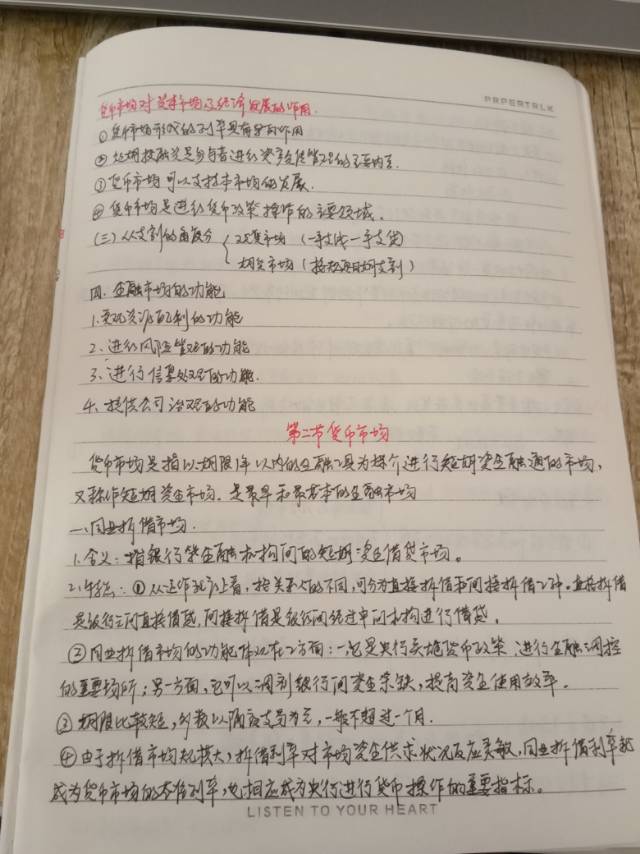 PAPERTALK
货币市场对资本市场及经济发展的作用.
①货币市场形成的利率具有导向作用
②短期投融资是参与者进行资产负债管理的主要内容.
③货币市场可以支持本市场的发展.
④货币市场是进行货币政策操作的主要领域.
(三)从交割的角度分 现货市场 (一手交钱一手交货)
期货市场 (按
四、金融市场的功能
1.实现资源配利的功能
2、进行风险管理的功能
3、进行信息处理的功能.
4、提供公司治理的功能
第二节货币市场
货币市场是指以期限1年以内的金融工具为媒介进行短期资金融通的市场,
又称作短期资金市场。是最早和最基本的金融市场
一、同业拆借市场.
1.含义:指银行等金融机构间的短期资金借贷市场。
2.特点:①从运作机方上看,按关系人的不同,可分为直接拆借和间接拆借2种。直接拆借
是银行之间直接借贷,间接拆借是银行间经过中间机构进行借贷.
②同业拆借市场的功能体现在2方面:一它是央行实施货币政策 进行金融调控
的重要场所;另一方面,它可以调剂银行间资金余缺,提高资金使用效率。
③期限比较短,多数以隔夜交易为主,一般不超过一个月.
④由于拆借市场规模大,拆借利率对市场资金供求状况反应灵敏,同业拆借利率就
成为货币市场的本准利率,也相应成为央行进行货币操作的重要指标。
LISTEN TO YOUR HEART